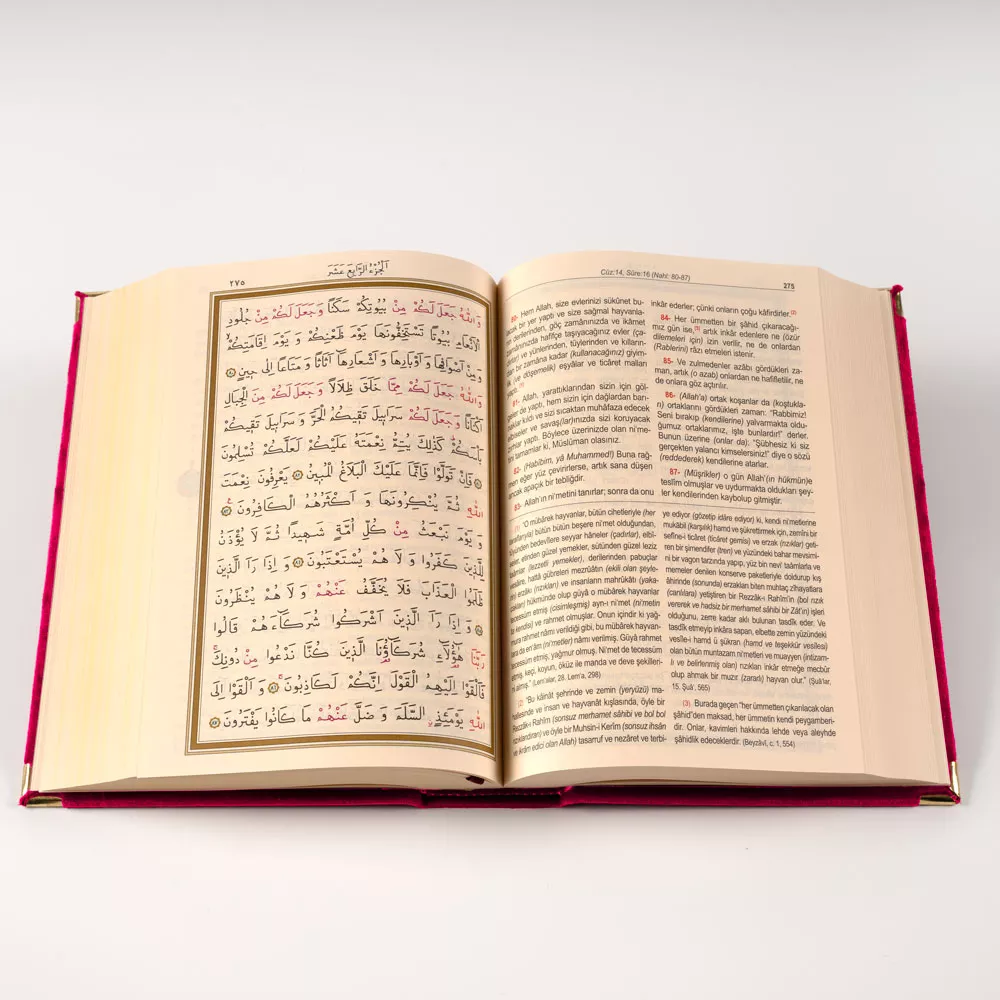 اَلْجُزْءُ الرَّابِعَ عَشَرَ
٢٧٥
وَاللّٰهُ جَعَلَ لَكُمْ مِنْ بُيُوتِكُمْ سَكَنًا وَجَعَلَ لَكُمْ مِنْ جُلُودِ
الْاَنْعَامِ بُيُوتًا تَسْتَخِفُّونَهَا يَوْمَ ظَعْنِكُمْ وَ يَوْمَ اِقَامَتِكُمْ
وَمِنْ اَصْوَافِهَا وَاَوْبَارِهَا وَاَشْعَارِهَا اَثَاثًا وَمَتَاعًا اِلٰى حِينٍ ﴿٨٠﴾
وَاللّٰهُ جَعَلَ لَكُمْ مِمَّا خَلَقَ ظِلَالًا وَجَعَلَ لَكُمْ مِنَ الْجِبَالِ
اَكْنَانًا وَجَعَلَ لَكُمْ سَرَابِيلَ تَقِيكُمُ الْحَرَّ وَ سَرَابِيلَ تَقِيكُمْ
بَأْسَكُمْ كَذٰلِكَ يُتِمُّ نِعْمَتَهُ عَلَيْكُمْ لَعَلَّكُمْ تُسْلِمُونَ
﴿٨١﴾ فَاِنْ تَوَلَّوْا فَاِنَّمَا عَلَيْكَ الْبَلَاغُ الْمُبِينُ ﴿٨٢﴾ يَعْرِفُونَ نِعْمَتَ
اللّٰهِ ثُمَّ يُنْكِرُونَهَا وَ اَكْثَرُهُمُ الْكَافِرُونَ ﴿٨٣﴾
وَ يَوْمَ نَبْعَثُ مِنْ كُلِّ اُمَّةٍ شَهِيدًا ثُمَّ لَا يُؤْذَنُ
لِلَّذِينَ كَفَرُوا وَ لَا هُمْ يُسْتَعْتَبُونَ ﴿٨٤﴾ وَ اِذَا رَاَ الَّذِينَ
ظَلَمُوا الْعَذَابَ فَلَا يُخَفَّفُ عَنْهُمْ وَ لَا هُمْ يُنْظَرُونَ
﴿٨٥﴾ وَ اِذَا رَاَ الَّذِينَ اَشْرَكُوا شُرَكَاءَهُمْ قَالُوا
رَبَّنَا هٰٓؤُلَاءِ شُرَكَاؤُنَا الَّذِينَ كُنَّا نَدْعُوا مِنْ دُونِكَ
فَاَلْقَوْا اِلَيْهِمُ الْقَوْلَ اِنَّكُمْ لَكَاذِبُونَ ﴿٨٦﴾ وَ اَلْقَوْا اِلَى
اللّٰهِ يَوْمَئِذٍ السَّلَمَ وَ ضَلَّ عَنْهُمْ مَا كَانُوا يَفْتَرُونَ ﴿٨٧﴾
Cüz:14, Sûre:16 (Nahl: 80-87)
275
80- Hem Allah, size evlerinizi sükûnet bu-
acak bir yer yaptı ve size sağmal hayvanla-
n derilerinden, göç zamanınızda ve ikâmet
zamanınızda hafifçe taşıyacağınız evler (ça-
ırlar) ve yünlerinden, tüylerinden ve kılların-
dan bir zamâna kadar (kullanacağınız) giyim-
lik (ve döşemelik) eşyâlar ve ticâret malları
yaptı. (1)
81- Allah, yarattıklarından sizin için göl-
geler de yaptı, hem sizin için dağlardan barı-
naklar kıldı ve sizi sıcaktan muhâfaza edecek
elbiseler ve savaş(lar)ınızda sizi koruyacak
zırhlar yaptı. Böylece üzerinizde olan ni'me-
tini tamamlar ki, Müslüman olasınız.
82- (Habîbim, yâ Muhammed!) Buna rağ-
men eğer yüz çevirirlerse, artık sana düşen
ancak apaçık bir tebliğdir.
83- Allah'ın ni'metini tanırlar; sonra da onu
inkâr ederler; çünki onların çoğu kâfirdirler.(2)
84- Her ümmetten bir şâhid çıkaracağı-
mız gün ise,(3) artık inkâr edenlere ne (özür
dilemeleri için) izin verilir, ne de onlardan
(Rablerini) râzı etmeleri istenir.
85- Ve zulmedenler azâbı gördükleri za-
man, artık (o azab) onlardan ne hafifletilir, ne
de onlara göz açtırılır.
86- (Allah'a) ortak koşanlar da (koştukla-
rı) ortaklarını gördükleri zaman: "Rabbimiz!
Seni bırakıp (kendilerine) yalvarmakta oldu-
ğumuz ortaklarımız, işte bunlardır!" derler.
Bunun üzerine (onlar da): "Şübhesiz ki siz
gerçekten yalancı kimselersiniz!" diye o sözü
(reddederek) kendilerine atarlar.
87- (Müşrikler) o gün Allah'ın (hükmün)e
teslîm olmuşlar ve uydurmakta oldukları şey-
ler kendilerinden kaybolup gitmiştir.
(1) "O mübârek hayvanlar, bütün cihetleriyle (her
taraflarıyla) bütün bütün beşere ni'met olduğundan,
tüyünden bedevîlere seyyar hâneler (çadırlar), elbi-
seler, etinden güzel yemekler, sütünden güzel leziz
taamlar (lezzetli yemekler), derilerinden pabuçlar
vesâire, hattâ gübreleri mezrûâtın (ekili olan şeyle-
rin) erzâkı (rızıkları) ve insanların mahrûkātı (yaka-
cakları) hükmünde olup gûyâ o mübârek hayvanlar
tecessüm etmiş (cisimleşmiş) ayn-ı ni'met (ni'metin
kendisi) ve rahmet olmuşlar. Onun içindir ki yağ-
mura rahmet nâmı verildiği gibi, bu mübârek hayvan-
lara da en'âm (ni'metler) nâmı verilmiş. Gûyâ rahmet
tecessüm etmiş, yağmur olmuş. Ni'met de tecessüm
etmiş, keçi, koyun, öküz ile manda ve deve şekilleri-
ni almış." (Lem'alar, 28. Lem'a, 298)
(2) "Bu kâinât şehrinde ve zemin (yeryüzü) ma-
hallesinde ve insan ve hayvanât kışlasında, öyle bir
Rezzâk-ı Rahîm (sonsuz merhamet sâhibi ve bol bol
rızıklandıran) ve öyle bir Muhsin-i Kerîm (sonsuz ihsân
ve ikrâm edici olan Allah) tasarruf ve nezâret ve terbi-
ye ediyor (gözetip idâre ediyor) ki, kendi ni'metlerine
mukābil (karşılık) hamd ve şükrettirmek için, zemîni bir
sefîne-i ticâret (ticaret gemisi) ve erzak (rızıklar) geti-
ren bir şimendifer (tren) ve yüzündeki bahar mevsimi-
ni bir vagon tarzında yapıp, yüz bin nevi taâmlarla ve
memeler denilen konserve paketleriyle doldurup kış
âhirinde (sonunda) erzakları biten muhtaç zîhayatlara
(canlılara) yetiştiren bir Rezzâk-ı Rahîm'in (bol rızık
vererek ve hadsiz bir merhamet sâhibi bir Zât'ın) işleri
olduğunu, zerre kadar aklı bulunan tasdîk eder. Ve
tasdîk etmeyip inkâra sapan, elbette zemin yüzündeki
vesîle-i hamd ü şükran (hamd ve teşekkür vesîlesi)
olan bütün muntazam ni'metleri ve muayyen (intizam-
lı ve belirlenmiş olan) rızıkları inkâr etmeğe mecbûr
olup ahmak bir muzır (zararlı) hayvan olur." (Şuâ'lar,
15. Şuâ', 565)
(3) Burada geçen "her ümmetten çıkarılacak olan
şâhid"den maksad, her ümmetin kendi peygamberi-
dir. Onlar, kavimleri hakkında lehde veya aleyhde
şâhidlik edeceklerdir. (Beyzâvî, c. 1, 554)